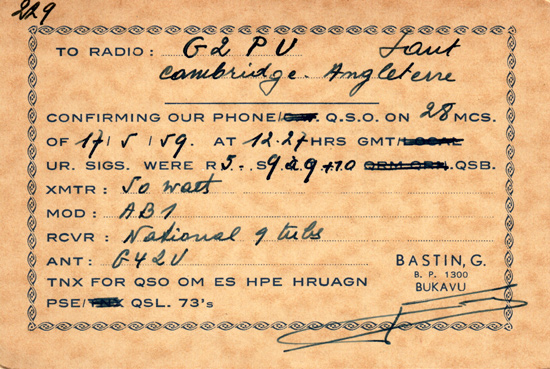 229
TO RADIO: G2PU
Cambridge. Angleterre
CONFIRMING OUR PHONE/ Q.S.O. ON 28 MCS.
OF 17/5/59. AT 12.27 HRS GMT/LOCAL
UR. SIGS. WERE R 5 - S 9 +10 QRM QRN. QSB.
XMTR: 50 watts
MOD: AB1
RCVR: National 9 tubs
ANT: G42U
BASTIN, G.
B. P. 1300
BUKAVU
TNX FOR QSO OM ES HPE HRUAGN
PSE/TNX QSL. 73's